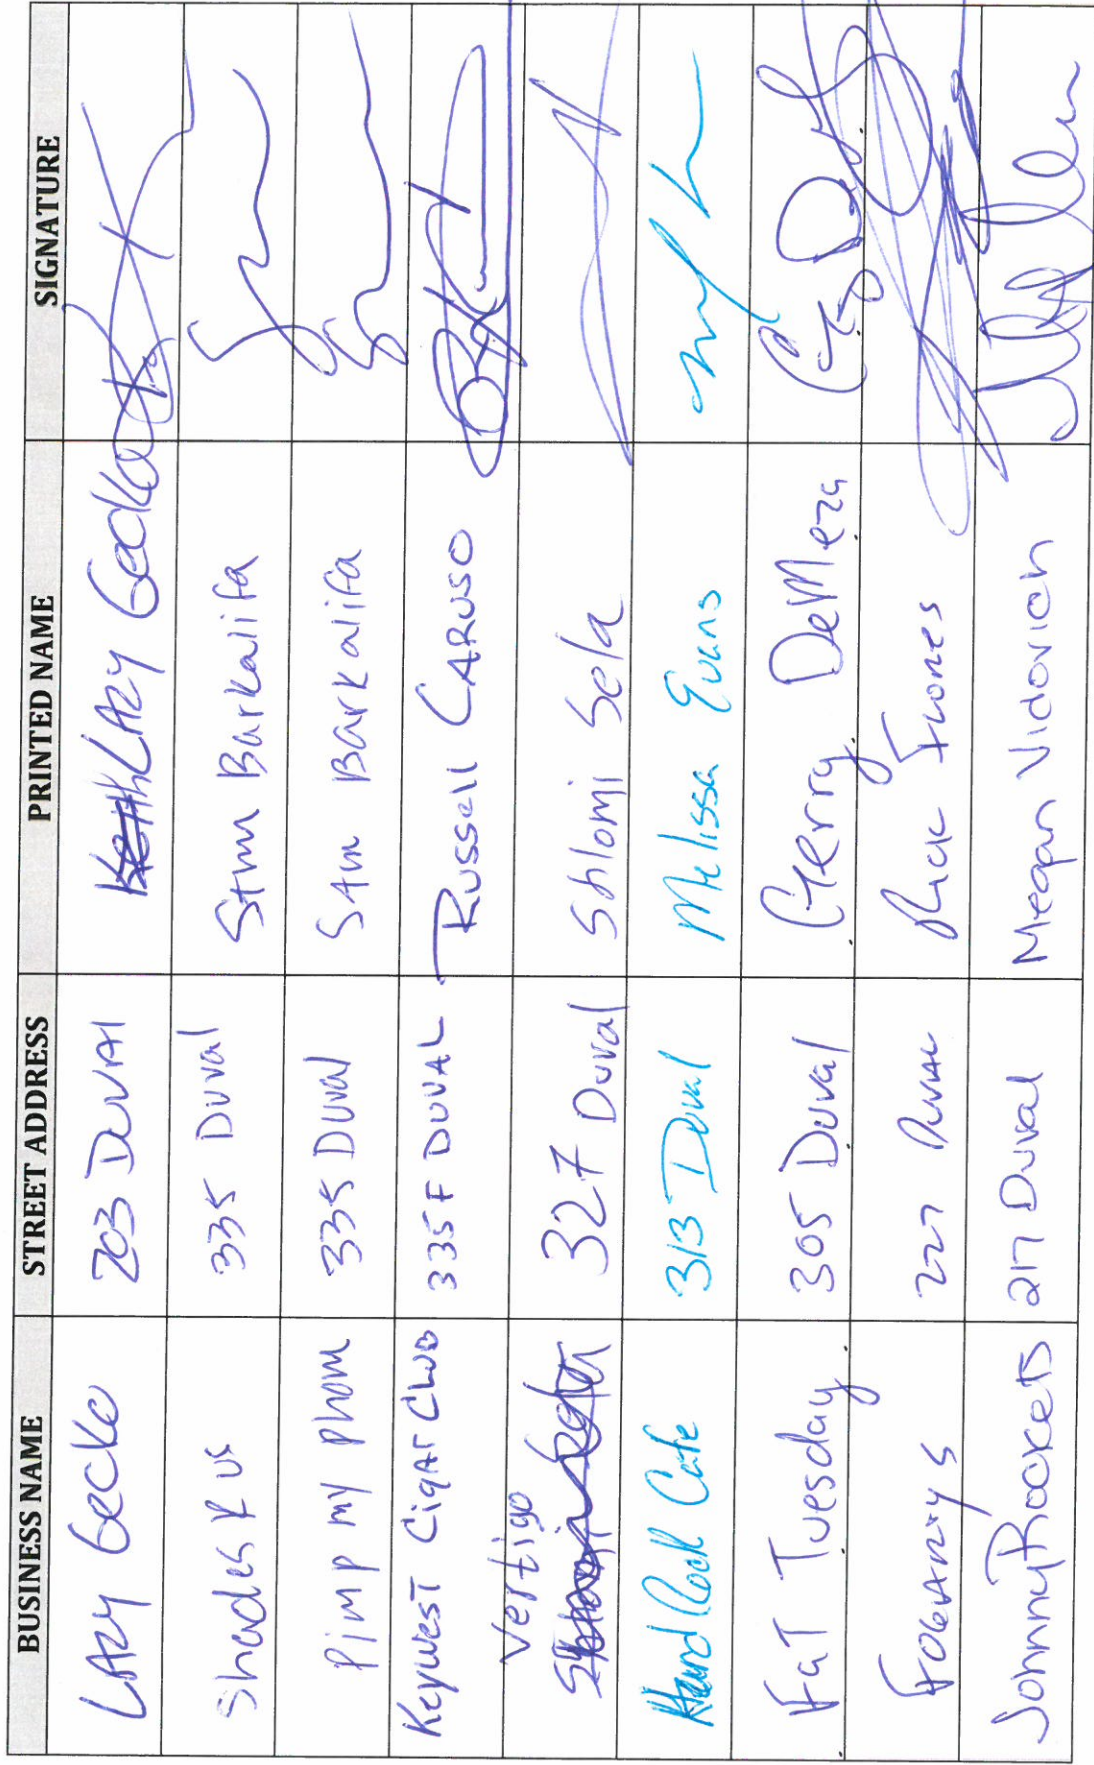 BUSINESS NAME STREET ADDRESS PRINTED NAME SIGNATURE
LAZY Gecko 203 DUVAl LAZY Gecko
Shades R us 335 Duval Sam Barkalifa
Pimp my phone 335 DUval SAm Barkalifa
Keywest CigAr CLUB 335 F DUVAL Russell CARUSO
Vertigo 327 Duval Shlomi Sela
Hard Rock Cafe 313 Duval Melissa Evans
FaT Tuesday. 305 Duval Gerry DeMeza
227 DUVAL Rick
Johnny Rockets 217 Duval Megan Vidovich